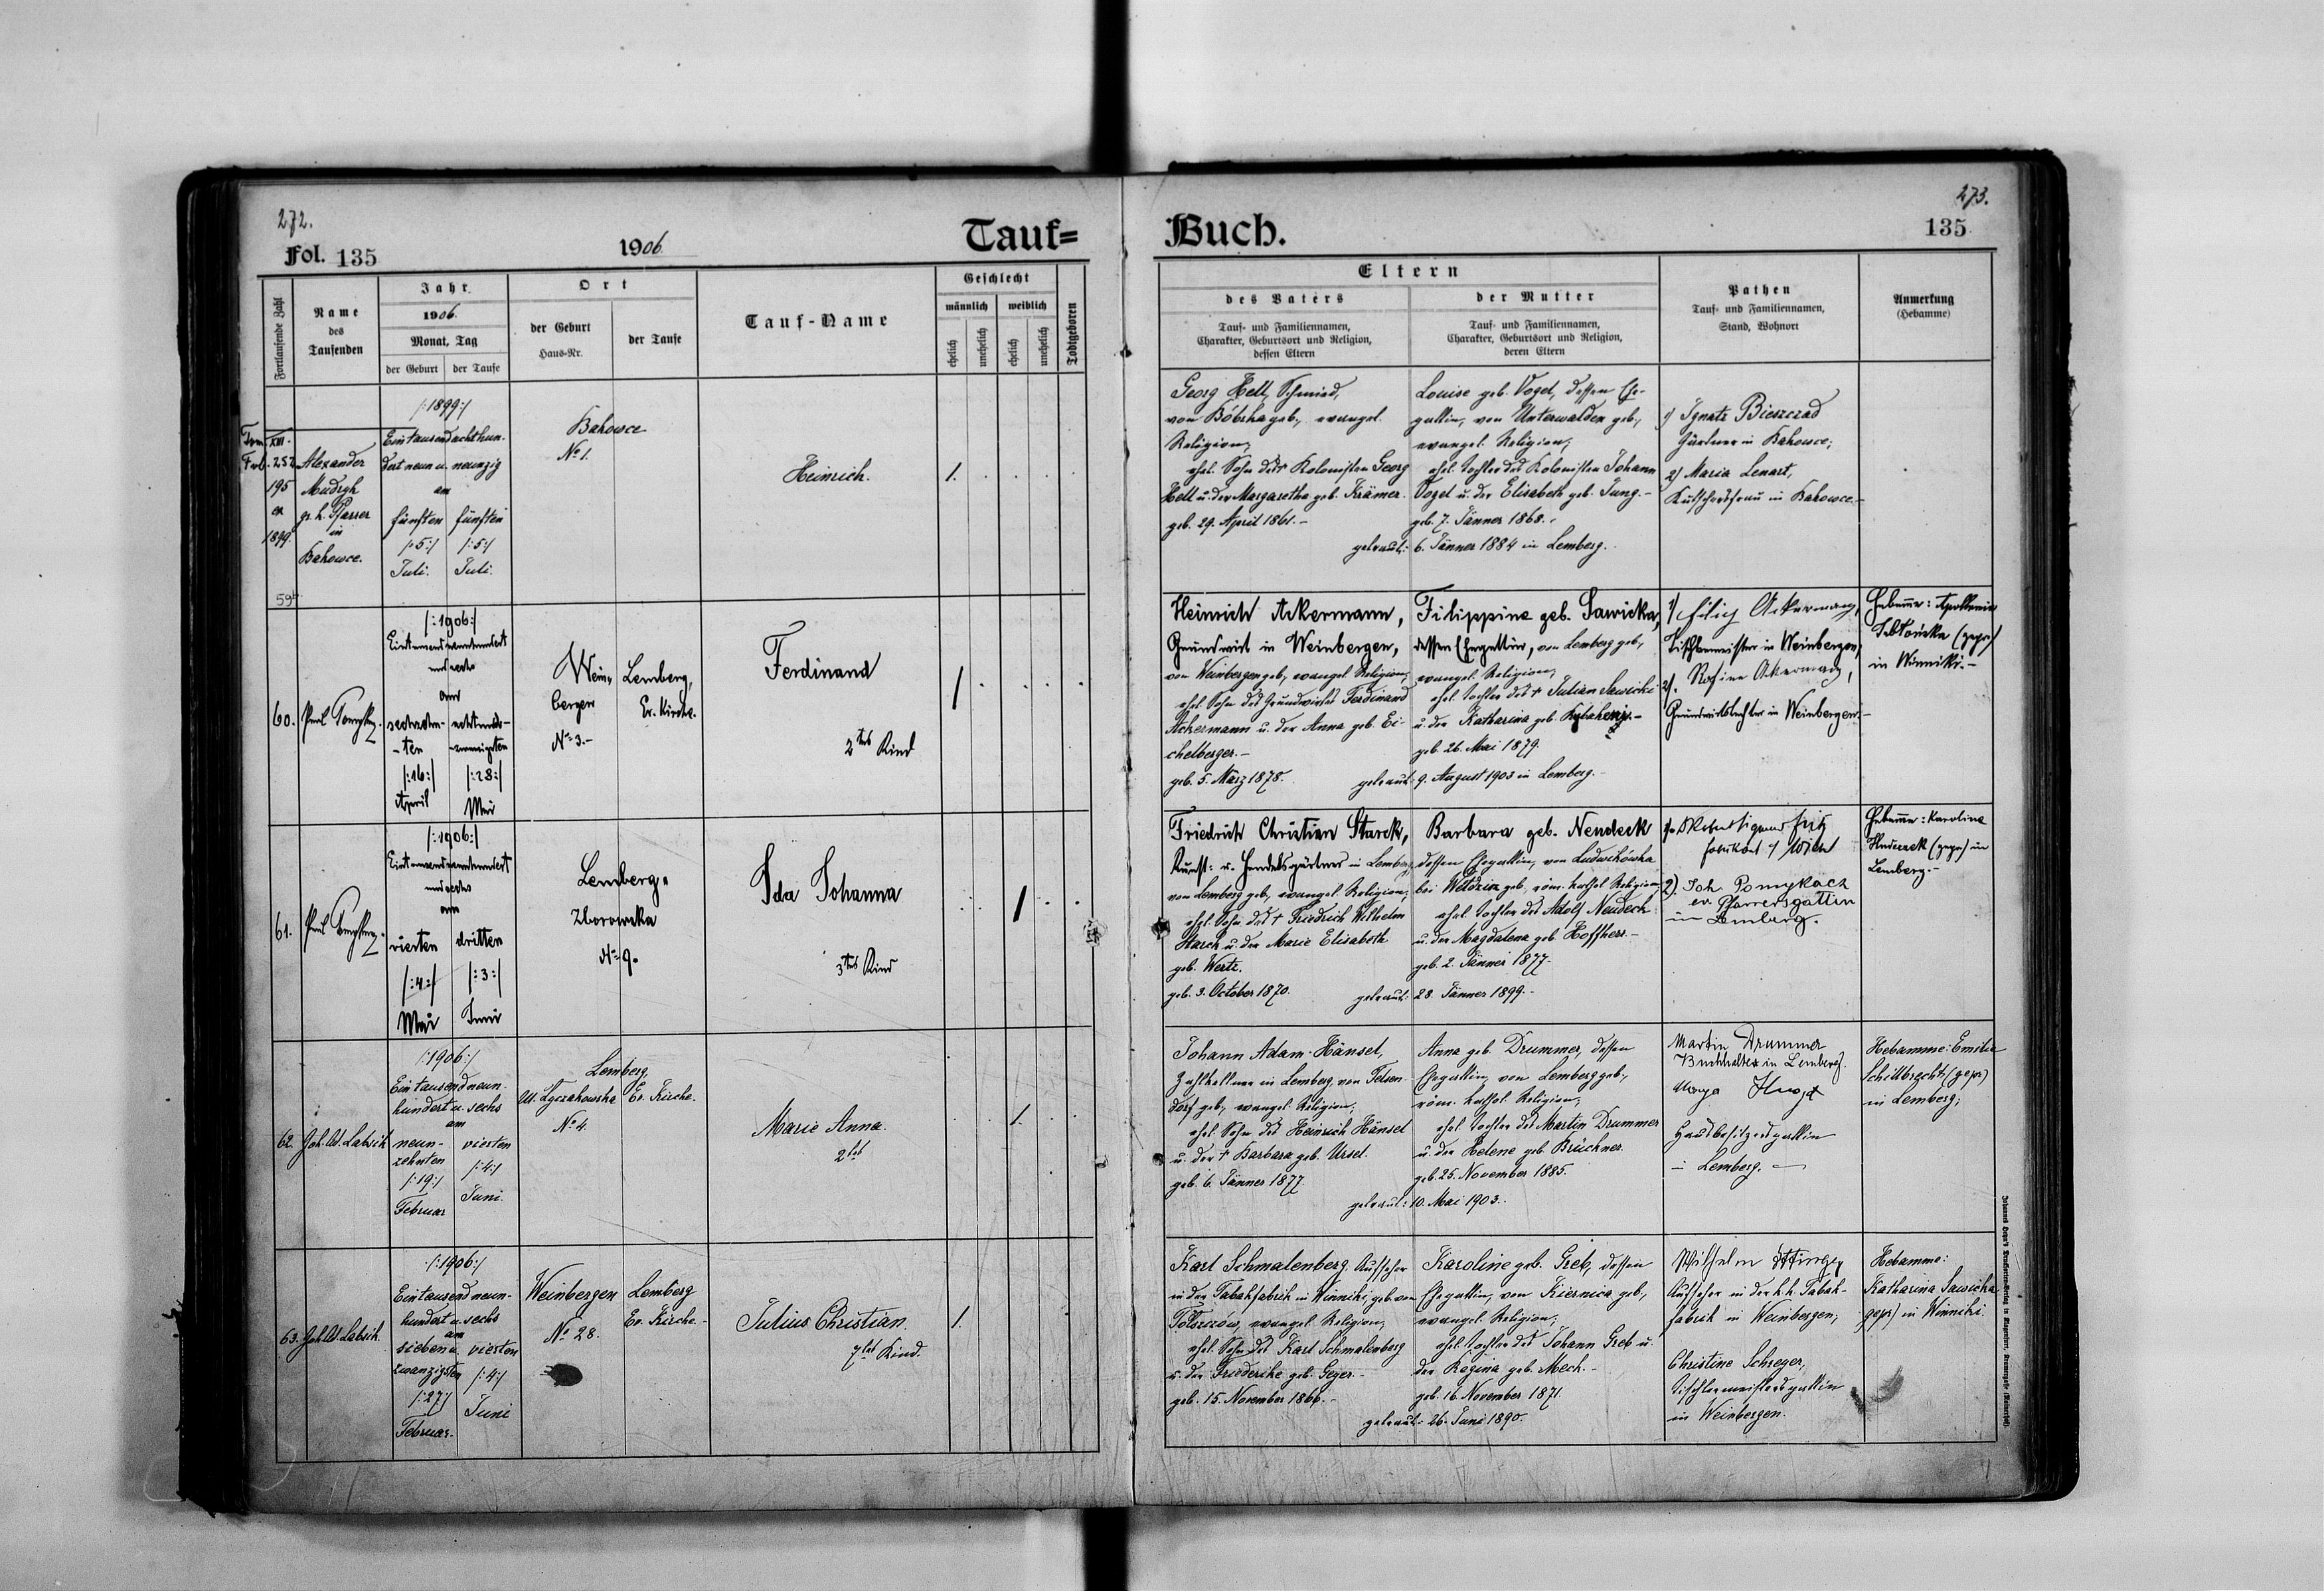 272.
Fol. 135
1906
Tauf=
Fortlaufende Zahl
Name
des
Taufenden
Jahr
1906.
Monat, Tag
der Geburt
der Taufe
Ort
der Geburt
Haus-Nr.
der Taufe
Tauf-Name
Geschlecht
männlich
weiblich
ehelich
unehelich
ehelich
unehelich
Todtgeboren
Tom XIII.
Fol. 252
195
ex
1899.
59b
Alexander
Mudryk
gr. k. Pfarrer
in
Bakowce.
/:1899:/
Eintausendachthun-
dert neun u. neunzig
am
fünften
/:5:/
Juli.
fünften
/:5:/
Juli.
Bakowce
No 1.
Heinrich.
1.
60.
Paul
/:1906:/
Eintausendneunhundert
und sechs
am
sechzehn-
-ten
/:16:/
April
achtund-
-zwanzigsten
/:28:/
Mai
Wein-
bergen
No 3.-
Lemberg,
Ev. Kirche.
Ferdinand
2tes Kind
1
61.
Paul
/:1906:/
Eintausendneunhundert
und sechs
am
vierten
/:4:/
Mai
dritten
/:3:/
Juni
Lemberg,
Zborowska
No 9.
Ida Johanna
3tes Kind
1
62.
Joh. Ad. Labsik
/:1906:/
Eintausendneun-
hundert u. sechs
am
neun-
zehnten
/:19:/
Februar
vierten
/:4:/
Juni.
Lemberg,
Ul. Łyczakowska
No 4.
Ev. Kirche.
Marie Anna.
2tes
1.
63.
Joh. Ad. Labsik.
/:1906:/
Eintausend neun-
hundert u. sechs
am
sieben u.
zwanzigsten
/:27:/
Februar.
vierten
/:4:/
Juni
Weinbergen
No 28.
Lemberg
Ev. Kirche.-
Julius Christian.
7tes Kind.
1.
273.
Buch.
135
Eltern
des Vaters
Tauf- und Familiennamen,
Charakter, Geburtsort und Religion,
dessen Eltern
der Mutter
Tauf- und Familiennamen,
Charakter, Geburtsort und Religion,
deren Eltern
Pathen
Tauf- und Familiennamen,
Stand, Wohnort
Anmerkung
(Hebamme)
Georg Hell, Schmied,
von Bóbrka geb., evangel.
Religion,
ehel. Sohn des Kolonisten Georg
Hell u. der Margaretha geb. Krämer.
geb. 29. April 1861.-
Louise geb. Vogel, dessen Ehe-
gattin, von Unterwalden geb.,
evangel. Religion,
ehel. Tochter des Kolonisten Johann
Vogel u. der Elisabeth geb. Jung.-
geb. 7. Jänner 1868.
getraut: 6. Jänner 1884 in Lemberg.
1) Ignatz Bieszczad
Gärtner in Bakowce;
2) Maria Lenart,
Kutschersfrau in Bakowce.-
Heinrich Ackermann,
Grundwirt in Weinbergen,
von Weinbergen geb., evangel. Religion,
ehel. Sohn des Grundwirtes Ferdinand
Ackermann u. der Anna geb. Ei-
chelberger.-
geb. 5. März 1878.
Filippine geb. Sawicka,
dessen Ehegattin, von Lemberg geb.,
evangel. Religion,
ehel. Tochter des † Julian Sawicki
u. der Katharina geb.
geb. 26. Mai 1879.
getraut: 9. August 1903 in Lemberg.-
1) Filip Ackermann,
Tischlermeister in Weinbergen,
2). Rosina Ackermann,
Grundwirtstochter in Weinbergen.-
Hebamme: Apollonia
(gepr)
in Winniki.-
Friedrich Christian Starck,
Kunst- u. Handelsgärtner in Lemberg,
von Lemberg geb., evangel. Religion,
ehel. Sohn des † Friedrich Wilhelm
Starck u. der Marie Elisabeth
geb. Wertz.
geb. 3. October 1870.
Barbara geb. Neudeck
dessen Ehegattin, von Ludwikówka
bei Wełdzirz geb., röm. kathol. Religion,
ehel. Tochter des Adolf Neudeck
u. der Magdalena geb. Hoffherr.-
geb. 2. Jänner 1877.
getraut: 28. Jänner 1899.-
1. Fritz
Fabrikant
2) Joh.
ev. Pfarrersgattin
in Lemberg.
Hebamme: Karolina
(gepr) in
Lemberg.-
Johann Adam Hänsel,
Zahlkellner in Lemberg, von Felsen-
dorf geb., evangel. Religion;
ehel. Sohn des Heinrich Hänsel
u. der † Barbara geb. Ursel.
geb. 6. Jänner 1877.
Anna geb. Drummer, dessen
Ehegattin, von Lemberg geb.,
röm. kathol. Religion,
ehel. Tochter des Martin Drummer
u. der Helene geb Brückner.
geb. 25. November 1885.
getraut: 10. Mai 1903.
Martin Drummer
Buchhalter in Lemberg.
Hausbesitzersgattin
in Lemberg.
Hebamme: Emilie
Schillbrecht (gepr)
in Lemberg;
Karl Schmalenberg, Aufseher
in der Tabakfabrik in Winniki, geb. von
evangel. Religion,
ehel. Sohn des Karl Schmalenberg
u. der Friederike geb. Geyer.-
geb. 15. November 1866.-
Karoline geb. Greb, dessen
Ehegattin, von Kiernica geb.,
evangel. Religion;
ehel. Tochter des Johann Greb u.
der Regina geb. Mech.-
geb. 16. November 1871.
getraut: 26. Juni 1890.
Wilhelm
Aufseher in der k. k. Tabak-
fabrik in Weinbergen;
Christine Schreyer,
Tischlermeistersgattin
in Weinbergen.
Hebamme:
Katharina Sawicka
gepr.) in Winniki.